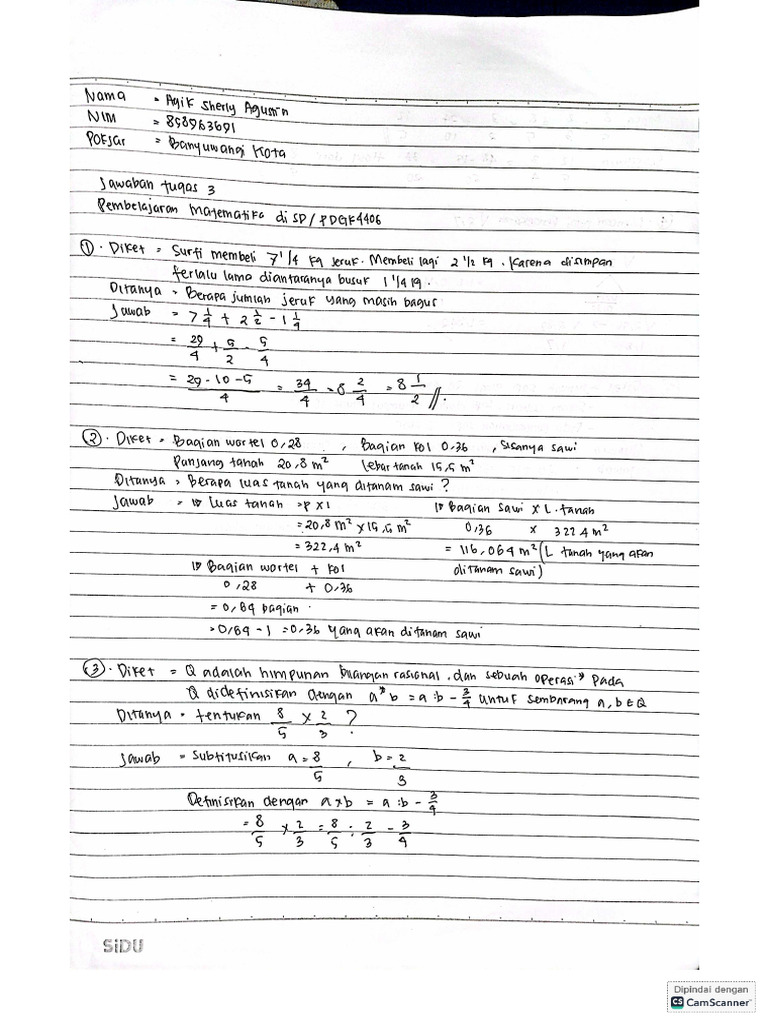 Nama = Agik Sherly Agustin
NIM = 858963691
Pokjar = Banyuwangi Kota
Jawaban tugas 3
Pembelajaran Matematika di SD / PDGK4406
① . Diket = Surti membeli 7 1/4 kg jeruk. Membeli lagi 2 1/2 kg. Karena disimpan
terlalu lama diantaranya busuk 1 1/4 kg.
Ditanya = Berapa jumlah jeruk yang masih bagus
Jawab = 7 1/4 + 2 1/2 - 1 1/4
= 29/4 + 5/2 - 5/4
= 29-10-5/4 = 34/4 = 8 2/4 = 8 1/2 //.
② . Diket = Bagian wortel 0,28 , Bagian kol 0,36 , sisanya sawi
Panjang tanah 20,8 m² Lebar tanah 15,5 m²
Ditanya = Berapa luas tanah yang ditanam sawi ?
Jawab = Luas tanah = p x l
= 20,8 m² x 15,5 m²
= 322,4 m²
Bagian wortel + kol
0,28 + 0,36
= 0,64 bagian .
= 0,64 - 1 = 0,36 yang akan ditanam sawi
Bagian sawi x L. tanah
0,36 x 322 4 m²
= 116,064 m² ( L tanah yang akan
ditanam sawi )
③ . Diket = Q adalah himpunan bilangan rasional . dan sebuah operasi * pada
Q didefinisikan dengan a * b = a : b - 3/4 untuk sembarang a, b ∈ Q
Ditanya = tentukan 8/5 x 2/3 ?
Jawab = Subtitusikan a = 8/5 , b = 2/3
Definisikan dengan a x b = a : b - 3/4
= 8/5 x 2/3 = 8/5 : 2/3 - 3/4
SiDU
Dipindai dengan
CS CamScanner